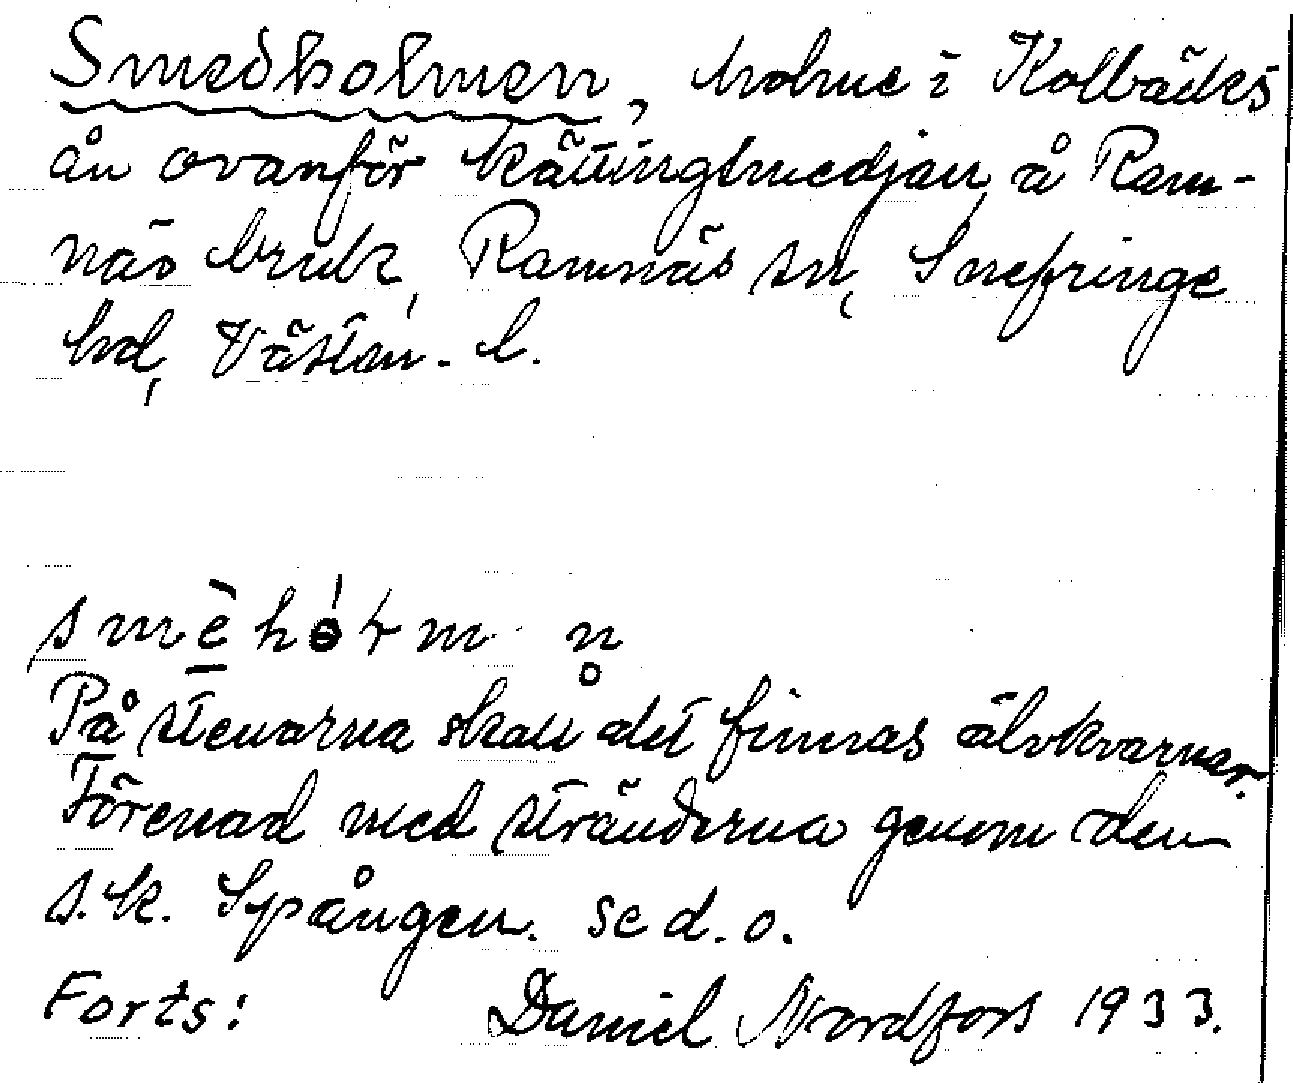 Smedholmen, holme i Kolbäcks
ån ovanför kättingsmedjan å Ram-
näs bruk, Ramnäs sn, Snefringe
hd, Västm. l.
På stenarna skall det finnas älvkvarnar.
Förenad med stränderna genom den
s.k. Spången. se d. o.
Forts: Daniel Nordfors 1933.